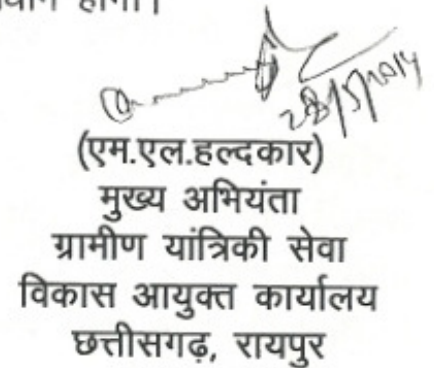 होगा।
28/5/2014
(एम.एल.हल्दकार)
मुख्य अभियंता
ग्रामीण यांत्रिकी सेवा
विकास आयुक्त कार्यालय
छत्तीसगढ़, रायपुर